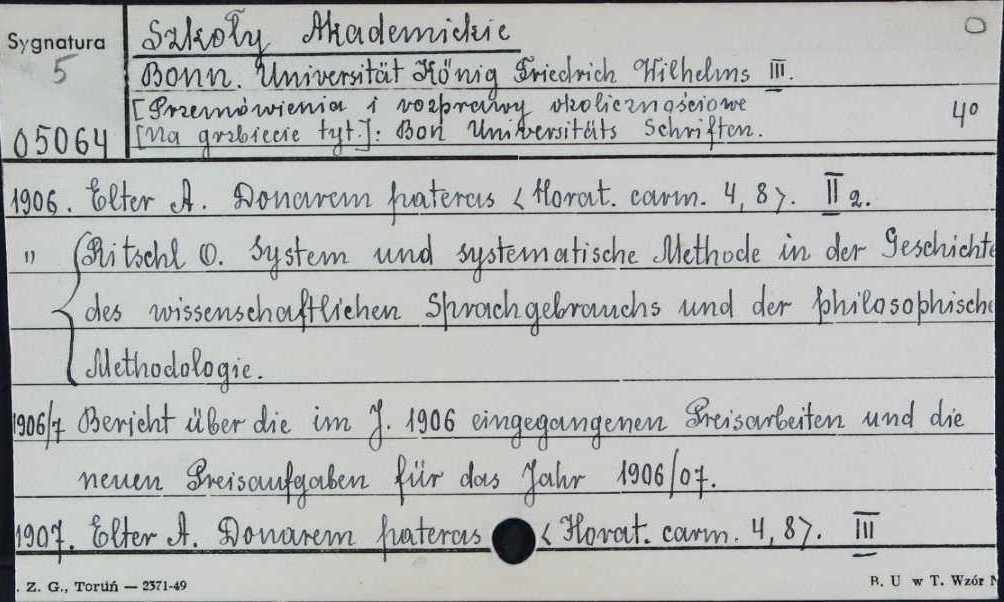 Sygnatura
5
05064
Szkoły Akademickie
Bonn. Universität König Friedrich Wilhelms III.
[Przemówienia i rozprawy okolicznościowe
4°
[Na grzbiecie tyt.]: Bon Universitäts Schriften.
1906. Elter A. Donarem pateras <Horat. carm. 4, 8>. II 2.
" Ritschl O. System und systematische Methode in der Geschichte
des wissenschaftlichen Sprachgebrauchs und der philosophische
Methodologie.
1906/7 Bericht über die im J. 1906 eingegangenen Preisarbeiten und die
neuen Preisaufgaben für das Jahr 1906/07.
1907. Elter A. Donarem pateras <Horat. carm. 4, 8>. III
. Z. G., Toruń — 2371-49
B. U w T. Wzór N